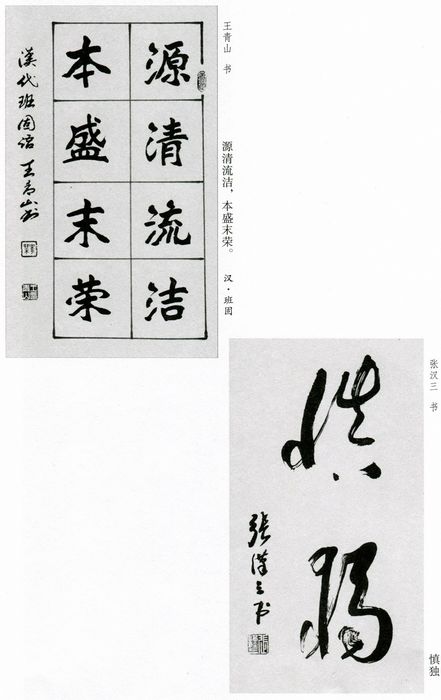 王青山 书
源清流洁，本盛末荣。 汉·班固
源清流洁
本盛末荣
漢代班固语 王青山书
张汉三 书
慎独
慎獨
張漢三书